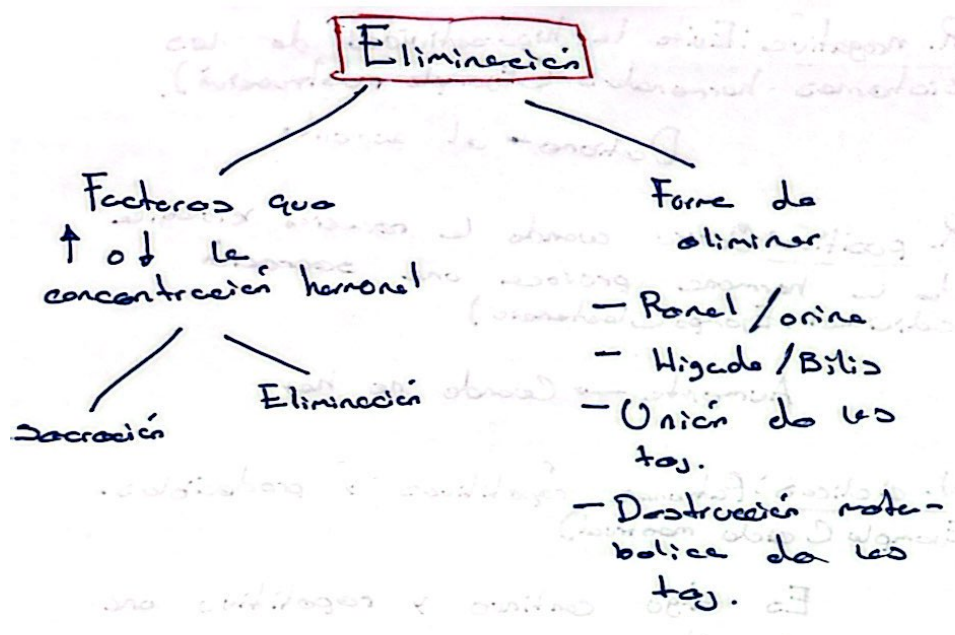 Eliminación
Factores que
↑ o ↓ la
concentración hormonal
Secreción
Eliminación
Forma de
eliminar
- Renal / orina
- Higado / Bilis
- Unión de las
tej.
- Destrucción meta-
bolica de las
tej.